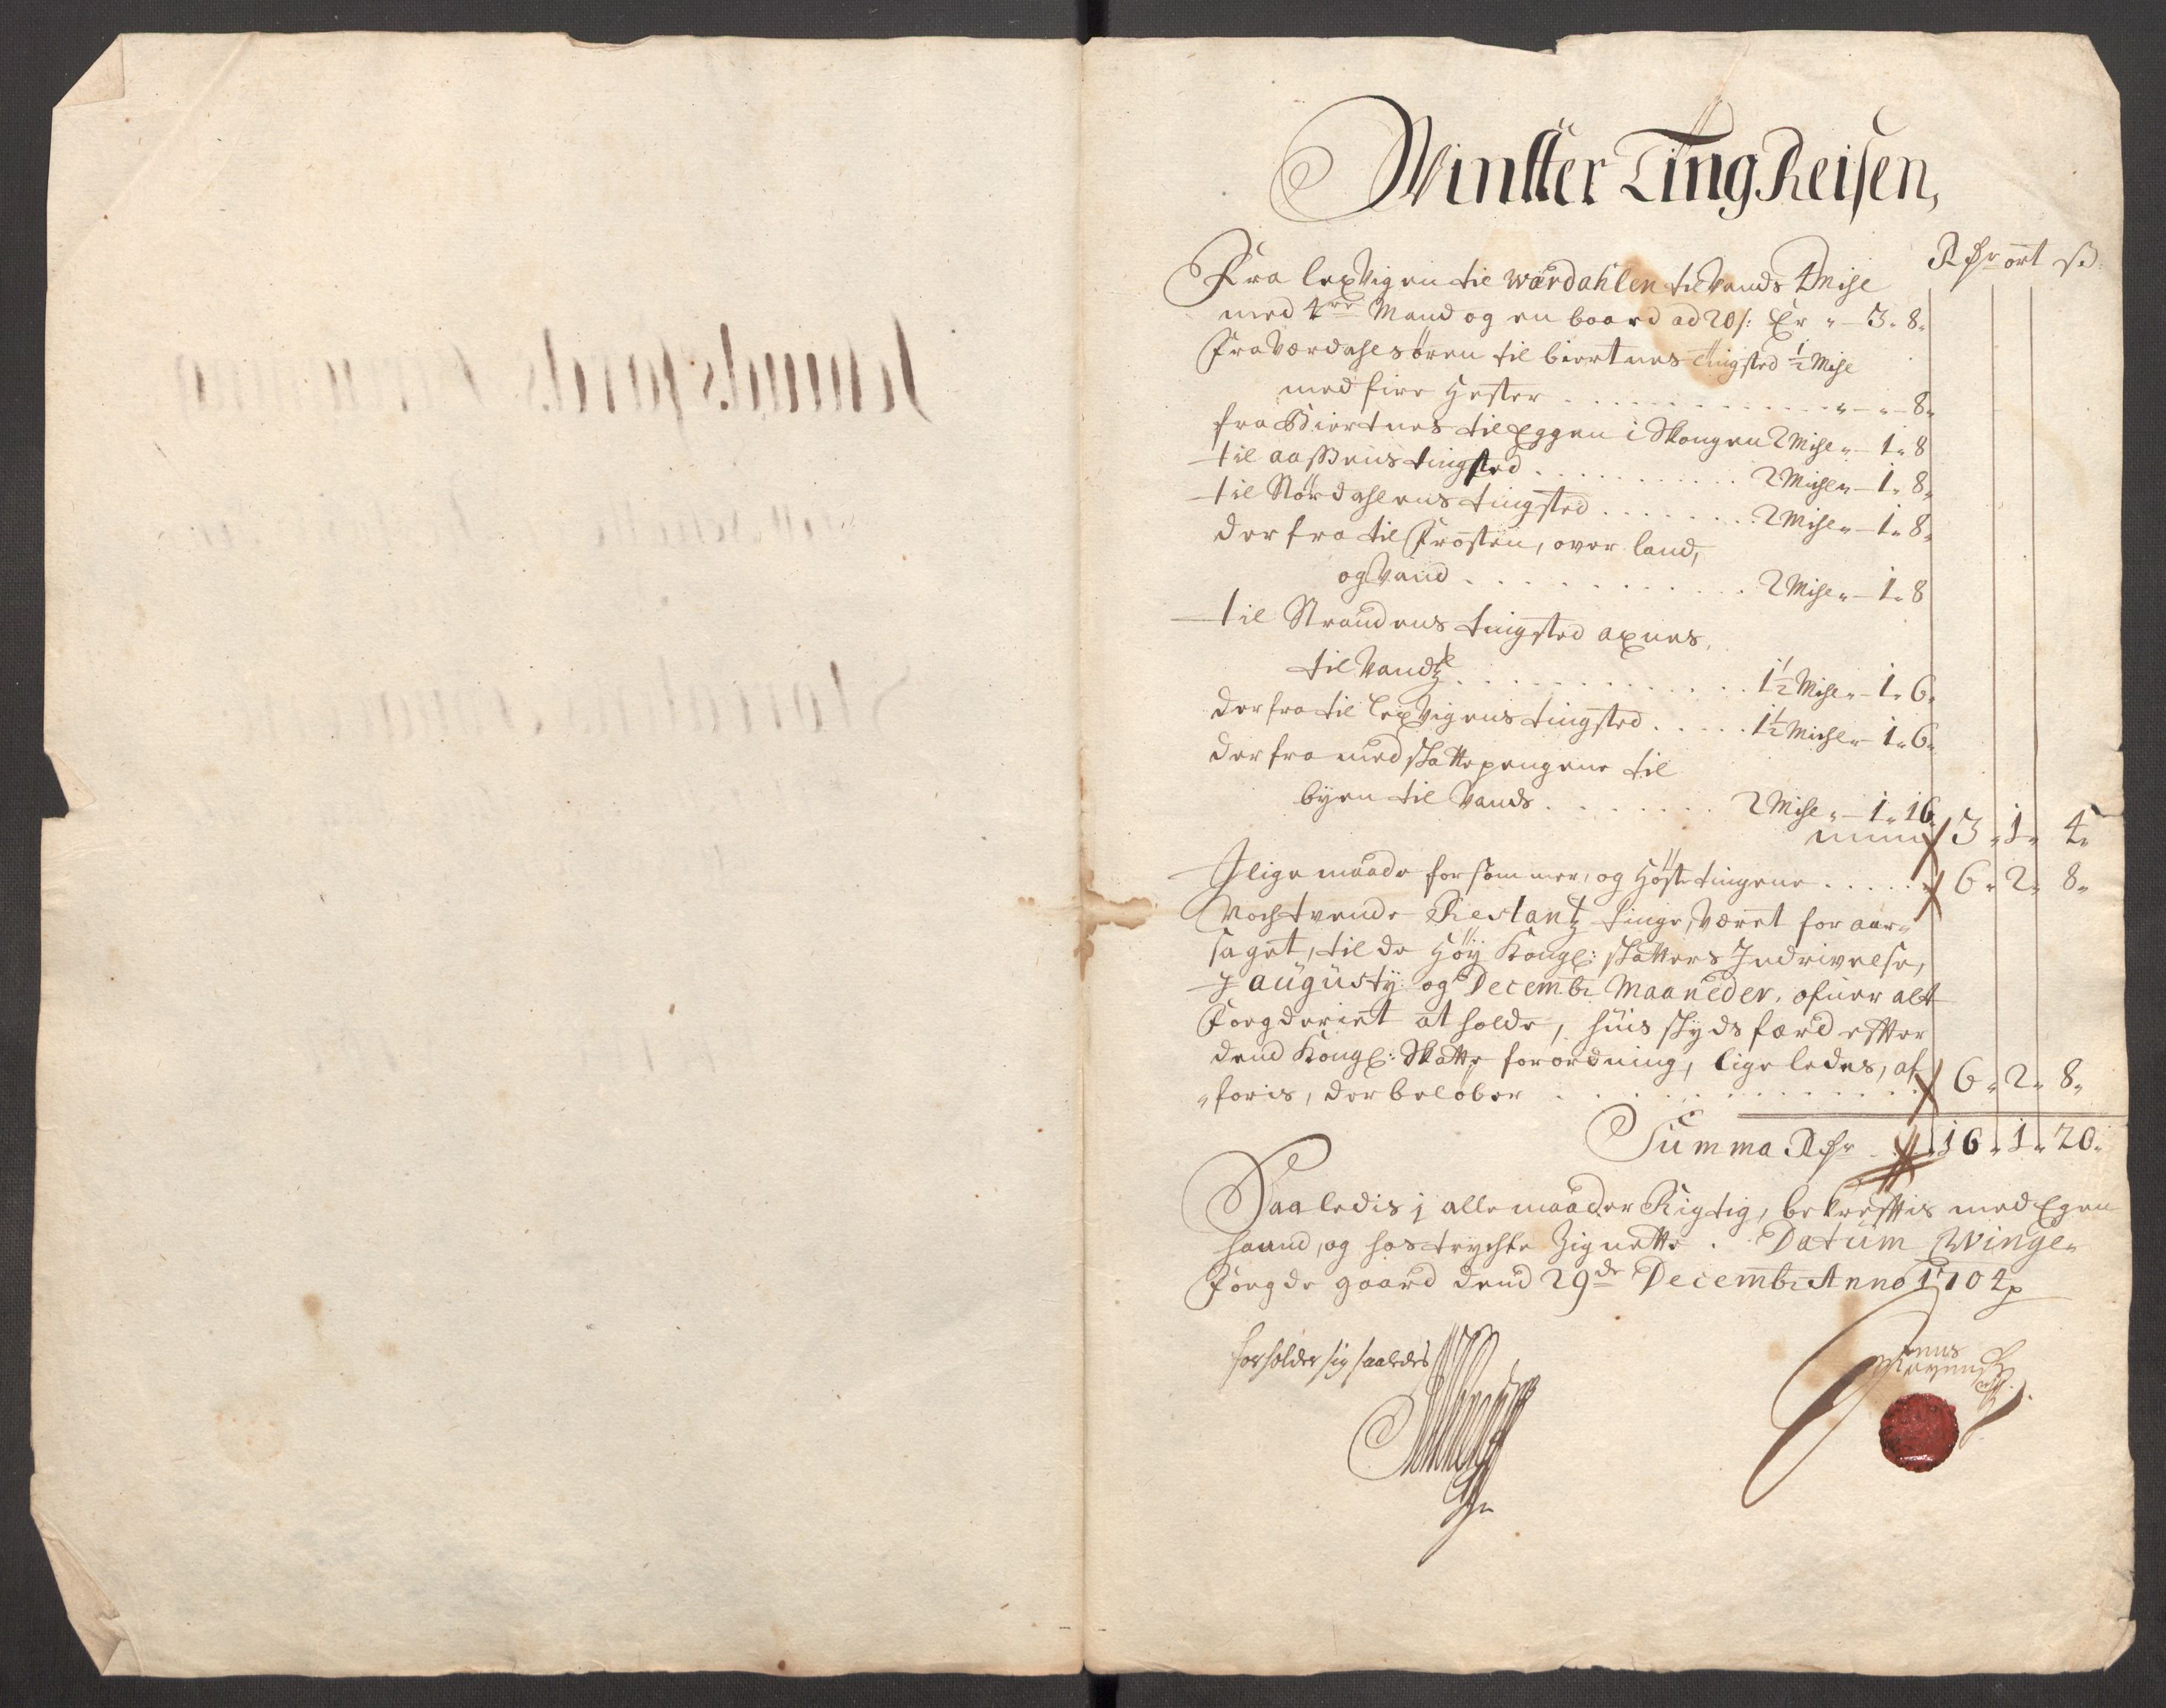 Vintter Ting Reisen,
Rdr ort ß
Fra lexvigen til wærdahlen til Vands 4 Mile
med 4re Mand og en baard ad 20 s: Er „ – 3 „ 8 „
Fra Værdahlsøren til biertnes tingsted ½ Mihl
med fire Hester . . . „ – „ – 8 „
fra Biertnes til Eggen i Skougen 2 Mihle „ – 1 „ 8
til aassens tingsted . . . 2 Mihle „ – 1 „ 8 „
til Størdahlens tingsted . . . 2 Mihle „ – 1 „ 8 „
der fra til Frosten, over land,
og Vand . . . 2 Mihle „ – 1 „ 8
til Strandens tingsted axnes,
til Vandtz . . . 1½ Mihle „ – 1 „ 6 „
der fra til lexvigens tingsted . . . 1½ Mihle „ – 1 „ 6 „
der fra med skattepengene til
byen til Vands . . . 2 Mihle „ – 1 „ 16
3 „ 1 „ 4 „
I lige maade for sommer, og Høste tingene . . . 6 „ 2 „ 8 „
Noch tvende Restantz tinge, været for aar„
saget, til de Høy Kongl: skatters Indrivelse,
j augusty og Decembr Maaneder, ofuer alt
Fogderiet at holde, huis skyds færd effter
dend Kongl: Skatte forordning, lige ledes, af
„foris, der beløber . . . 6 „ 2 „ 8 „
Summa Rdr . 16 „ 1 „ 20 „
Saaledis j alle maader Rigtig, bekreftis med Egen
haand, og hos trychte Zignette . Datum Winge„
Fougde gaard dend 29de Decembr Anno 1704
forholder sig saaledes